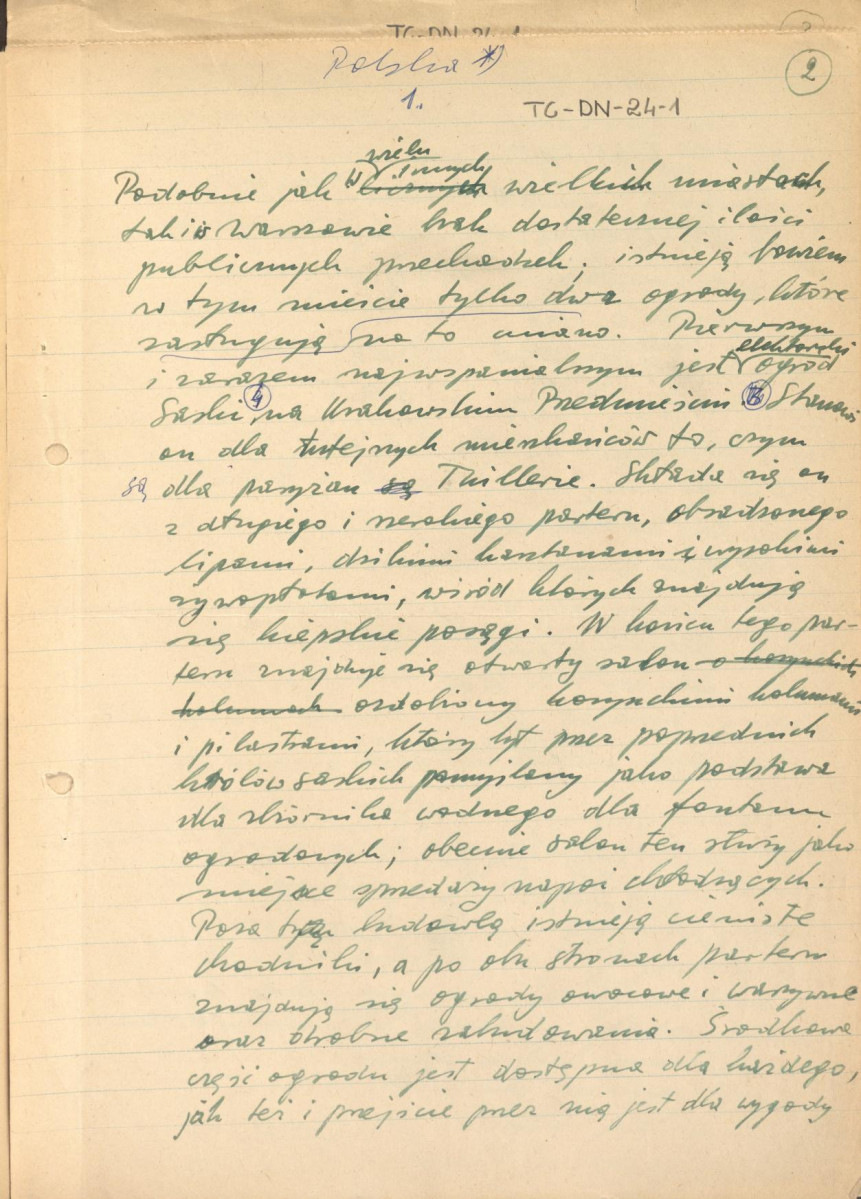 TG-DN-24-1
2
Polska *)
1.
TG-DN-24-1
wielu
Podobnie jak w licznych innych wielkich miastach,
tak i w Warszawie brak dostatecznej ilości
publicznych przechadzek; istnieją bowiem
w tym mieście tylko dwa ogrody, które
zasługują na to miano. Pierwszym
elektorski
i zarazem najwspanialszym jest ogród
Saski 4, na Krakowskim Przedmieściu Stanowi
on dla tutejszych mieszkańców to, czym
są dla paryżan są Thillerie. Składa się on
z długiego i szerokiego parteru, obsadzonego
lipami, dzikimi kasztanami i wysokimi
żywopłotami, wśród których znajdują
się kiepskie posągi. W końcu tego par-
teru znajduje się otwarty salon o korynckich
kolumnach ozdobiony korynckimi kolumnami
i pilastrami, który był przez poprzednich
królów saskich pomyślany jako podstawa
dla zbiornika wodnego dla fontann
ogrodowych; obecnie salon ten służy jako
miejsce sprzedaży napoi chłodzących.
Poza tą budowlą istnieją cieniste
chodniki, a po obu stronach parteru
znajdują się ogrody owocowe i warzywne
oraz drobne zabudowania. Środkowa
część ogrodu jest dostępna dla każdego,
jak też i przejście przez nią jest dla wygody